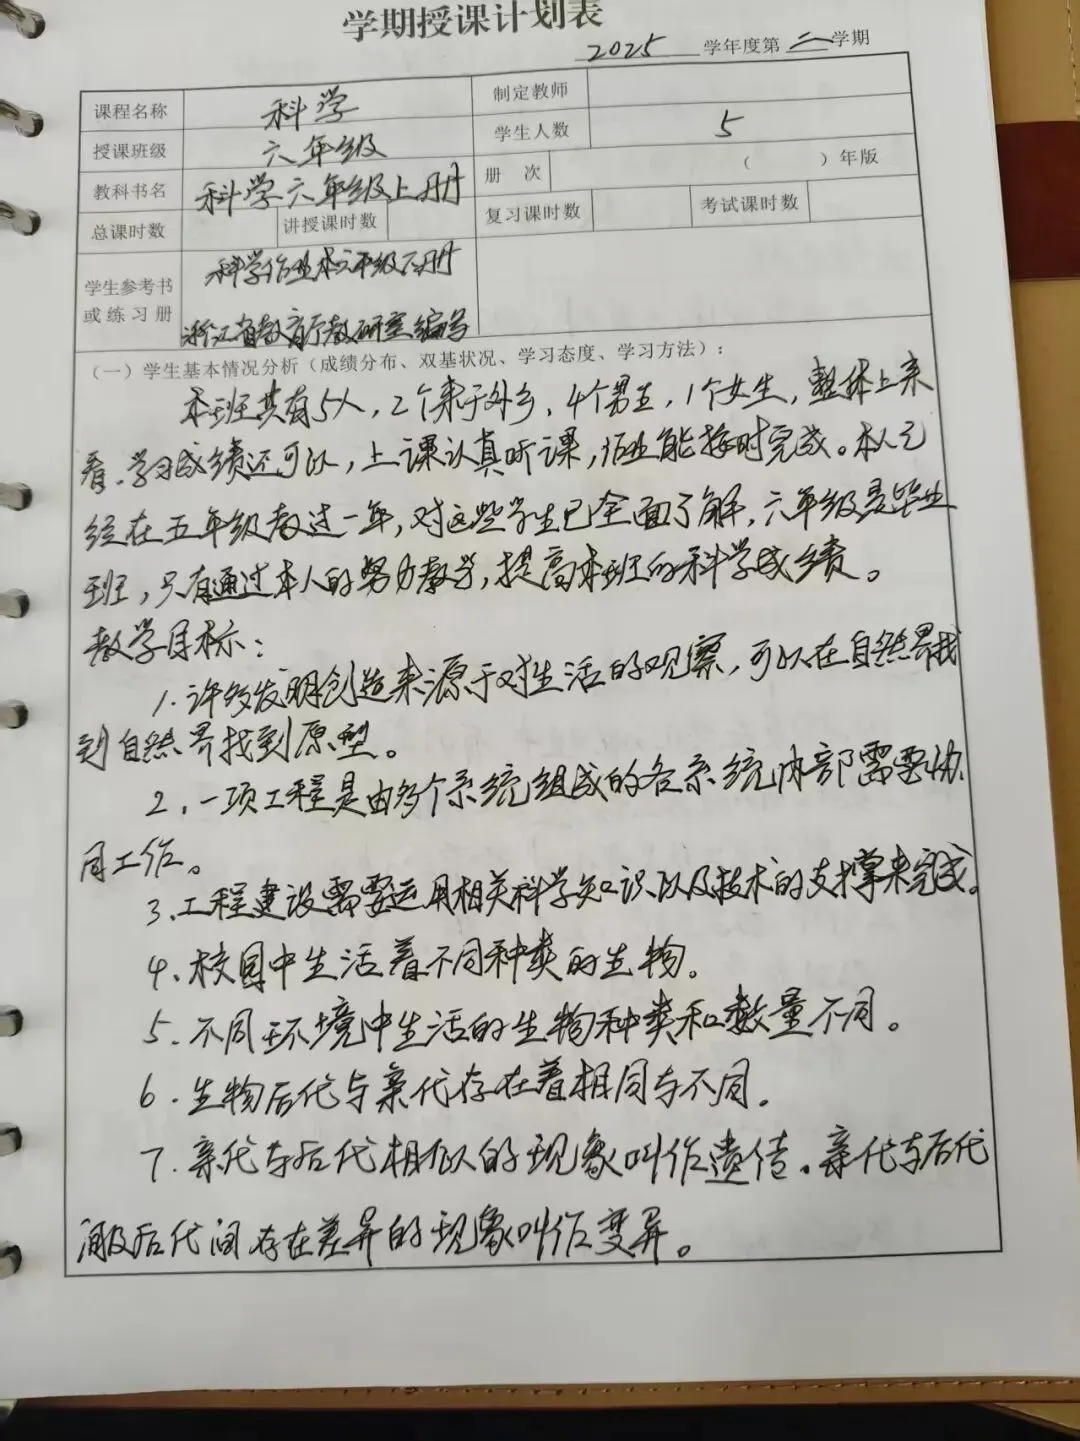 学期授课计划表
2025 学年度第二学期
课程名称 科学 制定教师
授课班级 六年级 学生人数 5
教科书名 科学六年级上册 册 次 （ ）年版
总课时数 讲授课时数 复习课时数 考试课时数
学生参考书或练习册 科学作业本六年级下册
浙江省教育厅教研室编号
（一）学生基本情况分析（成绩分布、双基状况、学习态度、学习方法）：
本班共有5人，2个来于外乡，4个男生，1个女生，整体上来
看，学习成绩还可以，上课认真听课，作业能按时完成。本人已
经在五年级教过一年，对这些学生已全面了解，六年级是毕业
班，只有通过本人的努力教学，提高本班的科学成绩。
教学目标：
1. 许多发明创造来源于对生活的观察，可以在自然界找
到自然界找到原型。
2. 一项工程是由多个系统组成的各系统内部需要协
同工作。
3. 工程建设需要运用相关科学知识以及技术的支撑来完成。
4、校园中生活着不同种类的生物。
5、不同环境中生活的生物种类和数量不同。
6. 生物后代与亲代存在着相同与不同。
7. 亲代与后代相似的现象叫作遗传。亲代与后代
间及后代间存在差异的现象叫作变异。